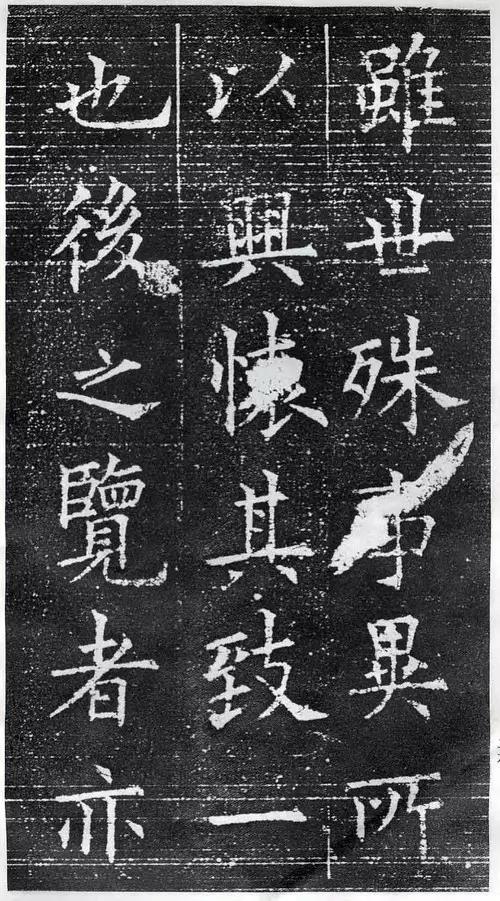 雖世殊事異所
以興懷其致一
也後之覽者亦